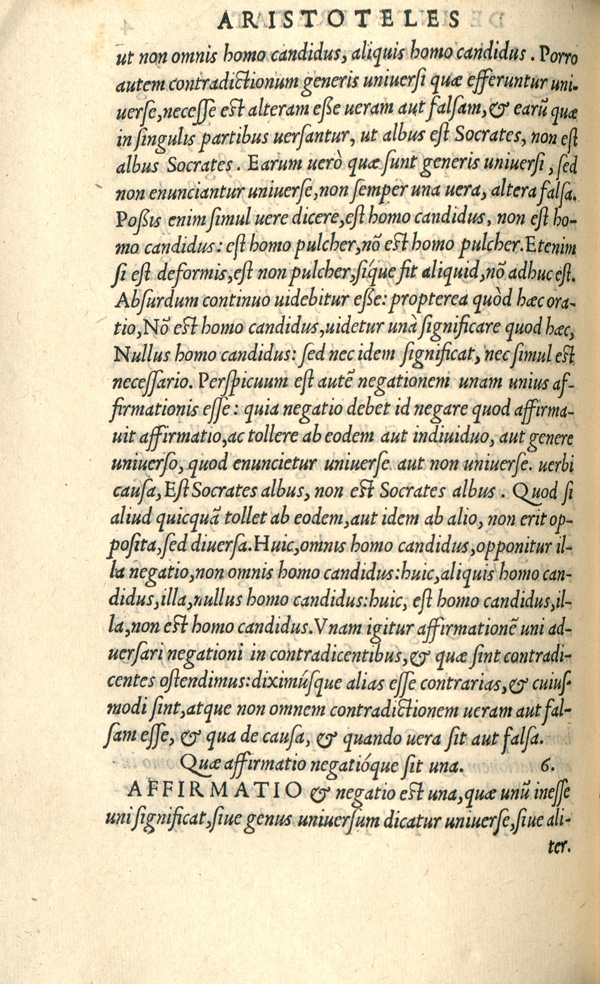 ARISTOTELES
ut non omnis homo candidus, aliquis homo candidus. Porro
autem contradictionum generis uniuersi quæ efferuntur uni-
uerse, necesse est alteram eße ueram aut falsam, & earũ quæ
in singulis partibus uersantur, ut albus est Socrates, non est
albus Socrates. Earum uerò quæ sunt generis uniuersi, sed
non enunciantur uniuerse, non semper una uera, altera falsa.
Poßis enim simul uere dicere, est homo candidus, non est ho-
mo candidus: est homo pulcher, nõ est homo pulcher. Etenim
si est deformis, est non pulcher, síque fit aliquid, nõ adhuc est.
Absurdum continuo uidebitur eße: propterea quòd hæc ora-
tio, Nõ est homo candidus, uidetur unà significare quod hæc,
Nullus homo candidus: sed nec idem significat, nec simul est
necessario. Perspicuum est autẽ negationem unam unius af-
firmationis esse: quia negatio debet id negare quod affirma-
uit affirmatio, ac tollere ab eodem aut indiuiduo, aut genere
uniuerso, quod enuncietur uniuerse aut non uniuerse. uerbi
causa, Est Socrates albus, non est Socrates albus. Quod si
aliud quicquã tollet ab eodem, aut idem ab alio, non erit op-
posita, sed diuersa. Huic, omnis homo candidus, opponitur il-
la negatio, non omnis homo candidus: huic, aliquis homo can-
didus, illa, nullus homo candidus: huic, est homo candidus, il-
la, non est homo candidus. Vnam igitur affirmationẽ uni ad-
uersari negationi in contradicentibus, & quæ sint contradi-
centes ostendimus: diximúsque alias esse contrarias, & cuius-
modi sint, atque non omnem contradictionem ueram aut fal-
sam esse, & qua de causa, & quando uera sit aut falsa.
Quæ affirmatio negatióque sit una. 6.
AFFIRMATIO & negatio est una, quæ unũ inesse
uni significat, siue genus uniuersum dicatur uniuerse, siue ali-
ter.